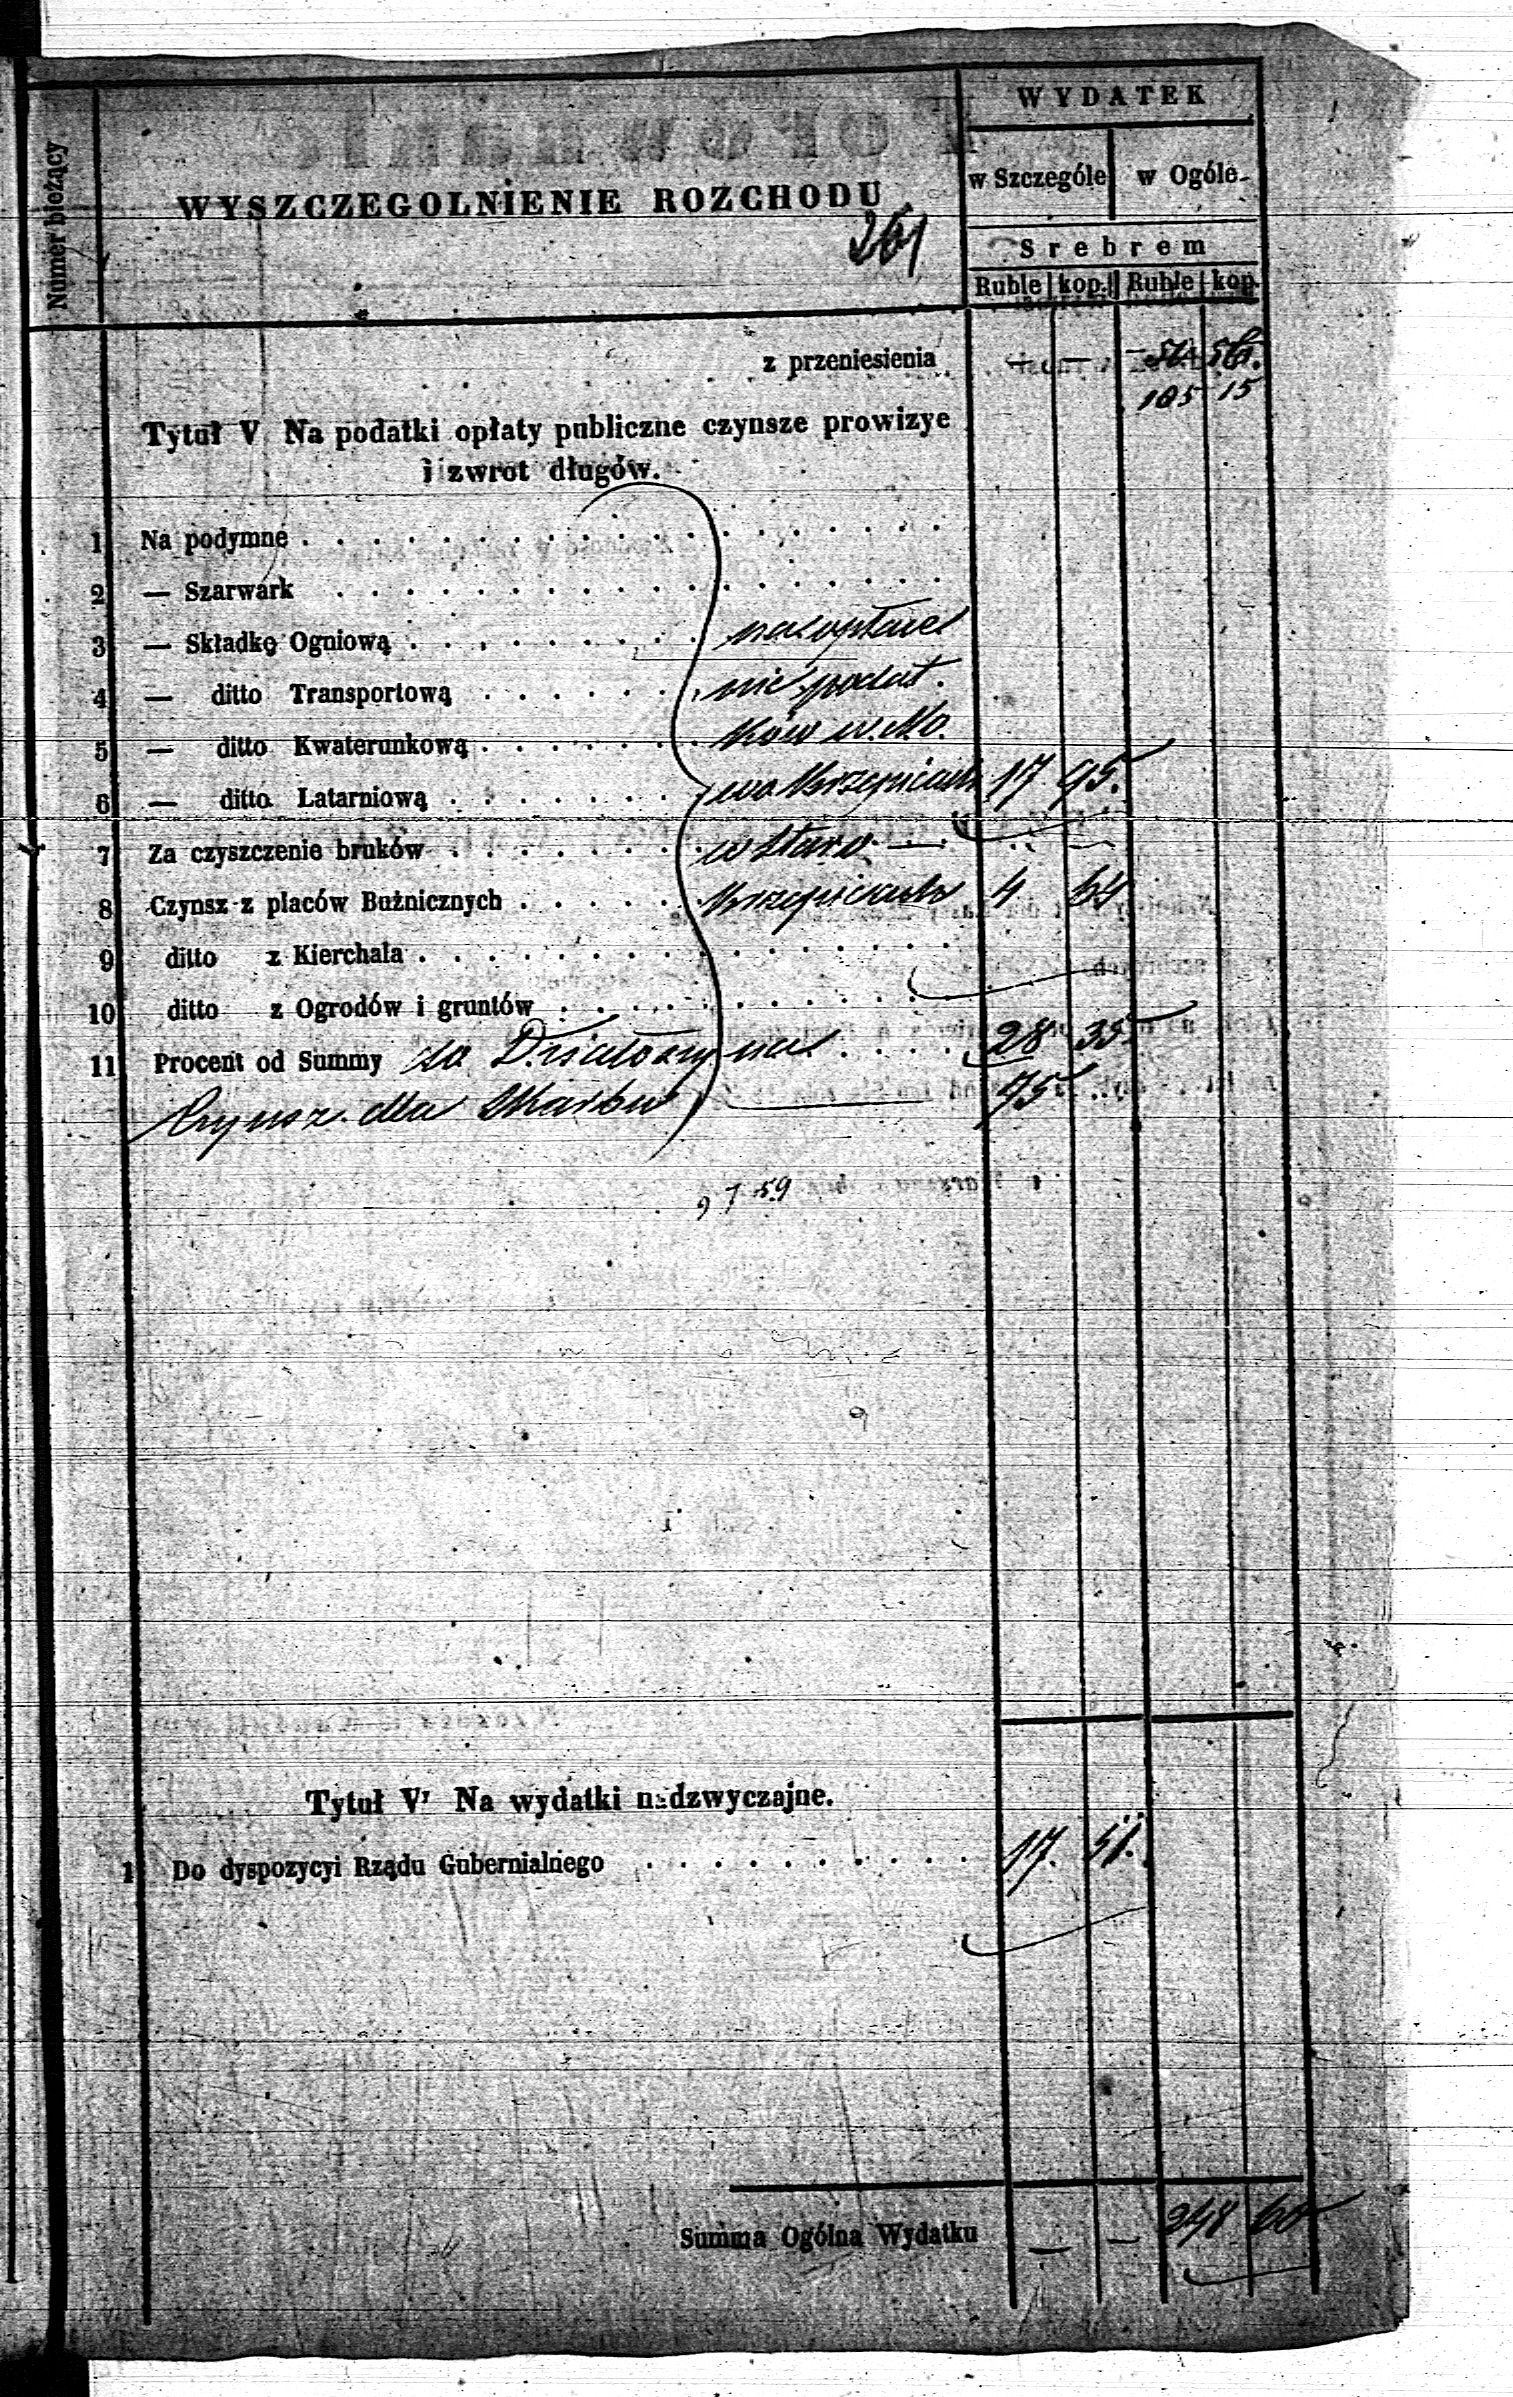 WYDATEK
Numer bieżący
WYSZCZEGOLNIENIE ROZCHODU
w Szczególe w Ogóle
261
Srebrem
Ruble kop. Ruble kop.
z przeniesienia — —
105 15
Tytuł V Na podatki opłaty publiczne czynsze prowizye
i zwrot długów.
1 Na podymne
2 — Szarwark
3 — Składkę Ogniową na opłace
4 — ditto Transportową nie podat.
5 — ditto Kwaterunkową ków w. Mo.
6 — ditto Latarniową Krzepicach 17 95.
7 Za czyszczenie bruków w Staro —
8 Czynsz z placów Bużnicznych Krzepicach 4 64
9 ditto z Kierchala
10 ditto z Ogrodów i gruntów
11 Procent od Summy do Działoszyna 28 35
Czynsz dla Skarbu 95
97 59
Tytuł V' Na wydatki nadzwyczajne.
1 Do dyspozycyi Rządu Gubernialnego 17. 51.
Summa Ogólna Wydatku — — 248 60